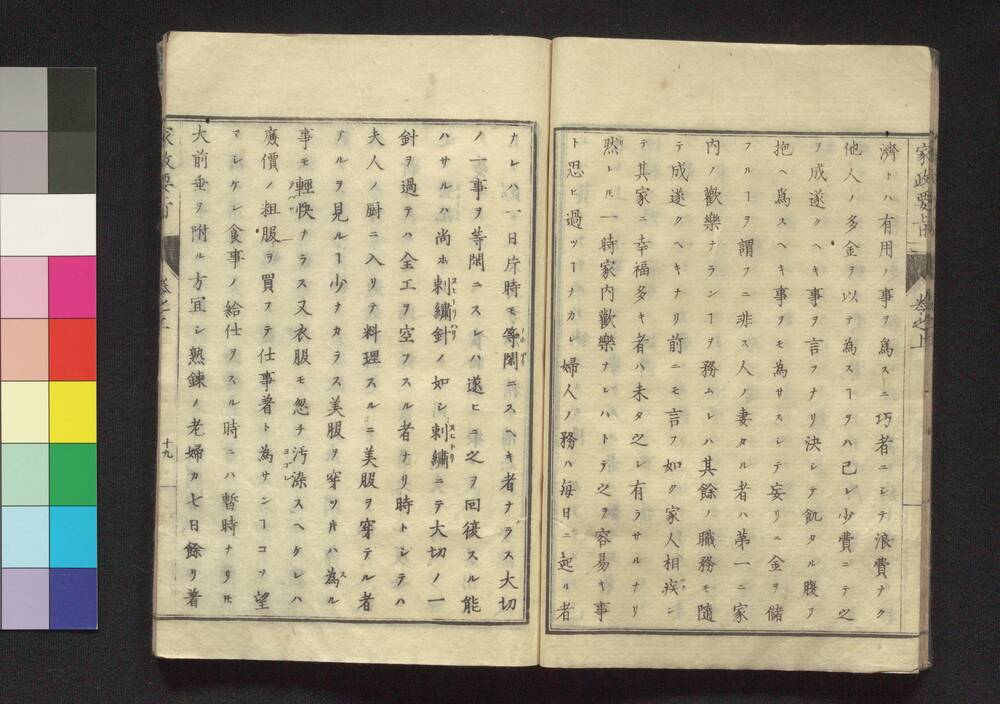 家政要旨
卷之上
濟トハ有用ノ事ヲ爲スニ巧者ニシテ浪費ナク
他人ノ多金ヲ以テ為スヿヲハ己レ少費ニテ之
ヲ成遂クヘキ事ヲ言フナリ決シテ飢タル腹ヲ
抱ヘ爲スヘキ事ヲモ為サスシテ妄リニ金ヲ儲
フルヿヲ謂フニ非ス人ノ妻タル者ハ第一ニ家
内ノ歡樂ナランヿヲ務ムレハ其餘ノ職務モ隨
テ成遂クヘキナリ前ニモ言フ如ク家人相疾ン
テ其家ニ幸福多キ者ハ未タ之レ有ラサルナリ
然レ𪜈一時家內歡樂ナレハトテ之ヲ容易キ事
ト思ヒ過ツヿナカレ婦人ノ務ハ每日ニ起ル者
ナレハ一日片時モ等閑ニスヘキ者ナラス大切
ノ一事ヲ等閑ニスレハ遂ヒニ之ヲ回復スル能
ハサルハ尚ホ刺繡針ノ如シ刺繡ニテ大切ノ一
針ヲ過テハ全工ヲ空フスル者ナリ時トシテハ
夫人ノ厨ニ入リテ料理スルニ美服ヲ穿テル者
アルヲ見ルヿ少ナカラス美服ヲ穿ツ片ハ為ル
事モ輕快ナラス又衣服モ忽チ汚染スヘケレハ
廉價ノ粗服ヲ買フテ仕事着ト為サンヿコソ望
マシケレ食事ノ給仕ヲスル時ニハ暫時ナリ𪜈
大前垂ヲ附ル方宜シ熟鍊ノ老婦カ七日餘リ着
家政要旨
卷之上
十九